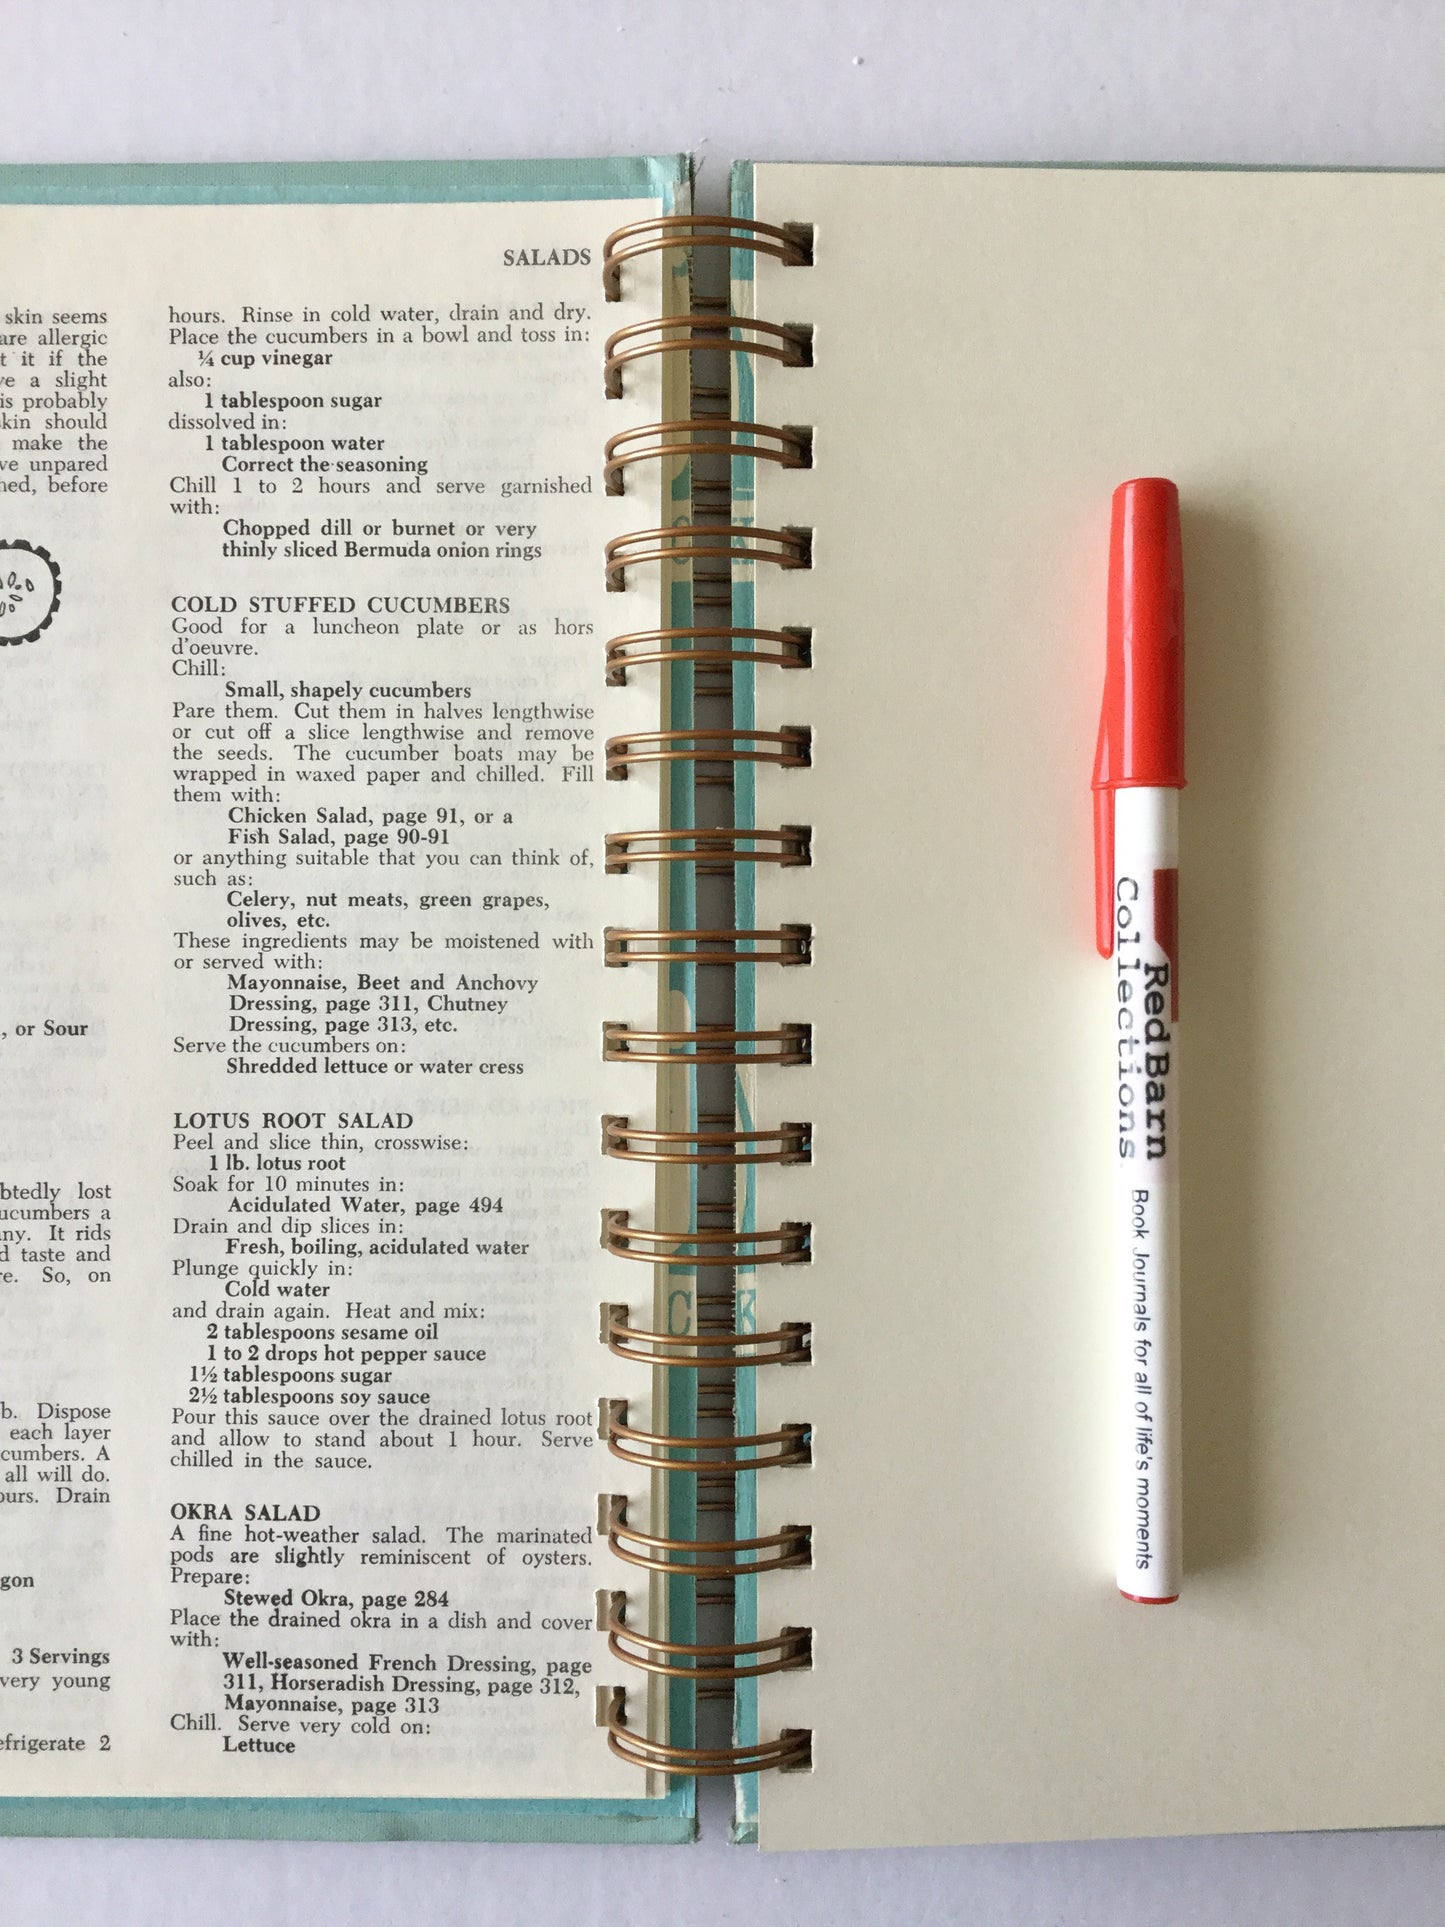 SALADS
skin seems
are allergic
it if the
a slight
is probably
should
make the
unpared
before
, or Sour
lost
a
It rids
taste and
So, on
Dispose
each layer
A
all will do.
Drain
3 Servings
very young
2
hours. Rinse in cold water, drain and dry.
Place the cucumbers in a bowl and toss in:
¼ cup vinegar
also:
1 tablespoon sugar
dissolved in:
1 tablespoon water
Correct the seasoning
Chill 1 to 2 hours and serve garnished
with:
Chopped dill or burnet or very
thinly sliced Bermuda onion rings
COLD STUFFED CUCUMBERS
Good for a luncheon plate or as hors
d'oeuvre.
Chill:
Small, shapely cucumbers
Pare them. Cut them in halves lengthwise
or cut off a slice lengthwise and remove
the seeds. The cucumber boats may be
wrapped in waxed paper and chilled. Fill
them with:
Chicken Salad, page 91, or a
Fish Salad, page 90-91
or anything suitable that you can think of,
such as:
Celery, nut meats, green grapes,
olives, etc.
These ingredients may be moistened with
or served with:
Mayonnaise, Beet and Anchovy
Dressing, page 311, Chutney
Dressing, page 313, etc.
Serve the cucumbers on:
Shredded lettuce or water cress
LOTUS ROOT SALAD
Peel and slice thin, crosswise:
1 lb. lotus root
Soak for 10 minutes in:
Acidulated Water, page 494
Drain and dip slices in:
Fresh, boiling, acidulated water
Plunge quickly in:
Cold water
and drain again. Heat and mix:
2 tablespoons sesame oil
1 to 2 drops hot pepper sauce
1½ tablespoons sugar
2½ tablespoons soy sauce
Pour this sauce over the drained lotus root
and allow to stand about 1 hour. Serve
chilled in the sauce.
OKRA SALAD
A fine hot-weather salad. The marinated
pods are slightly reminiscent of oysters.
Prepare:
Stewed Okra, page 284
Place the drained okra in a dish and cover
with:
Well-seasoned French Dressing, page
311, Horseradish Dressing, page 312,
Mayonnaise, page 313
Chill. Serve very cold on:
Lettuce
C K
Red Barn
Collections
Book Journals for all of life's moments